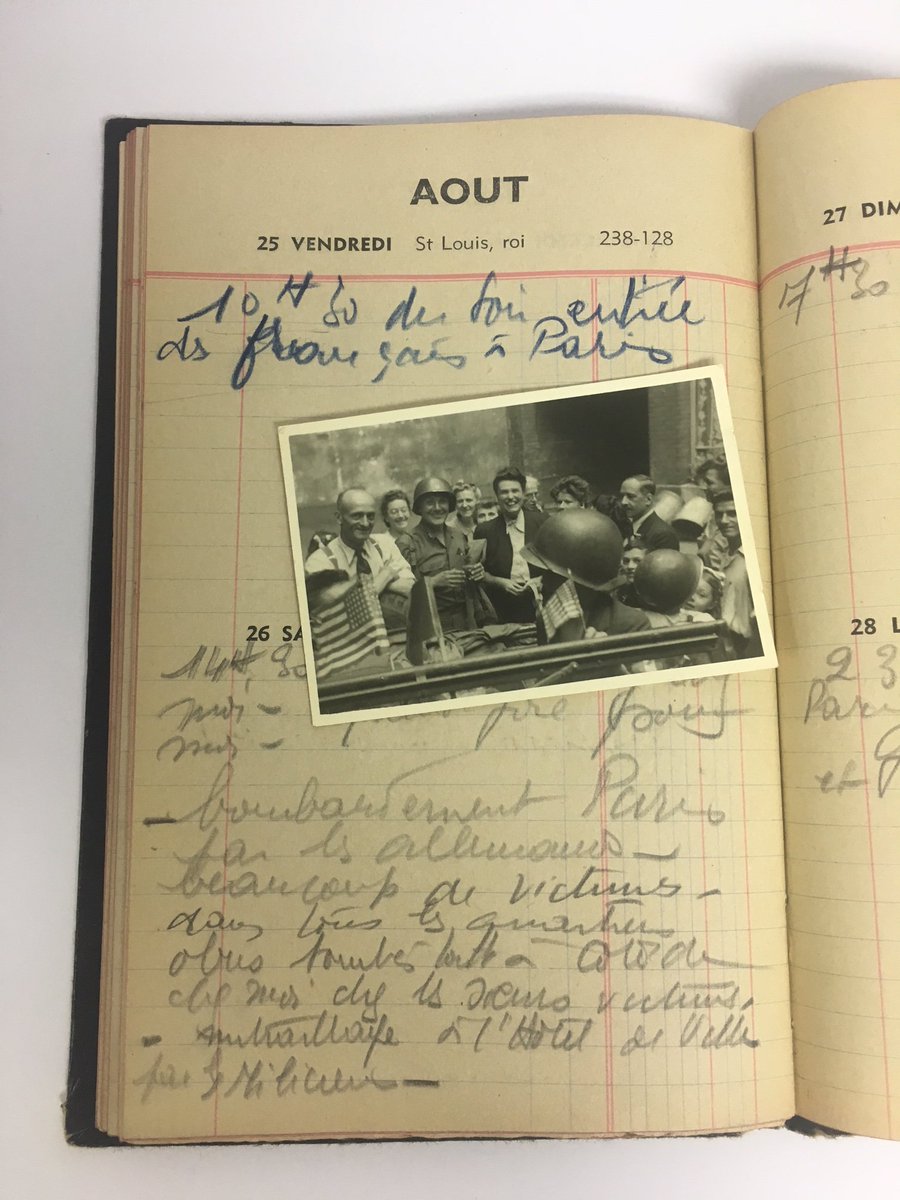 AOUT
25 VENDREDI St Louis, roi 238-128
10H30 du soir entrée
des français à Paris
26 SA
14H,30
moi -
moi -
- bombardement Paris
par les allemands -
beaucoup de victimes -
dans tous les quartiers
obus tombés tout à côté de
chez moi chez les sœurs victimes.
- mitraillage à l'Hôtel de Ville
par les Miliciens -
27 DIM
17H30
28 L
23
Paris
et